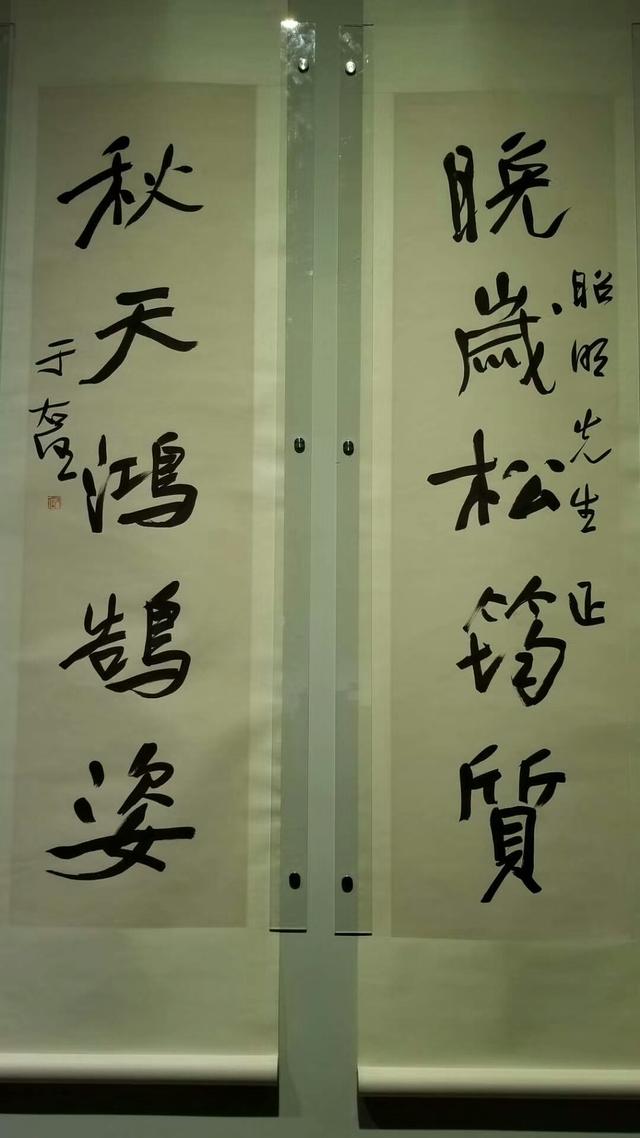 晚歲松筠質
昭明先生 正
秋天鴻鵠姿
于右任